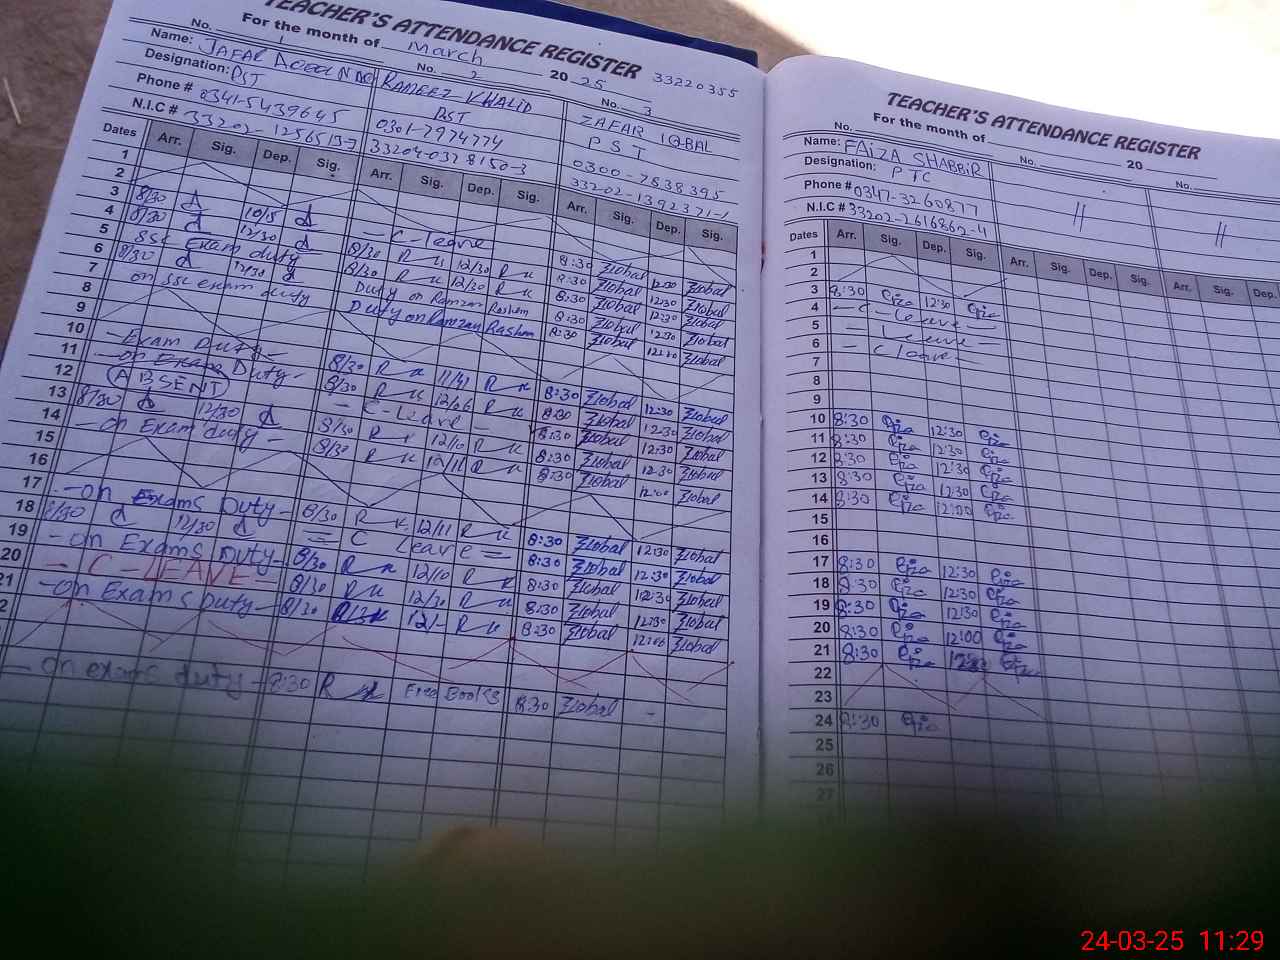 TEACHER'S ATTENDANCE REGISTER
33220355
For the month of March 20 25
No. 1 No. 2 No. 3
Name: JAFAR RAMEEZ KHALID ZAFAR IQBAL
Designation: PST PST PST
Phone # 0341-5439645 0301-7974774 0300-7838395
N.I.C # 33202-1256513-7 33204-0378150-3 33202-1392371-1
Dates Arr. Sig. Dep. Sig. Arr. Sig. Dep. Sig. Arr. Sig. Dep. Sig.
1
2
3 8/30 10/5 - C-leave 8:30 12:30
4 8/30 12/30 8/30 12/30 8:30 12:30
5 SSC Exam duty 8/30 12/30 8:30 12:30
6 8/30 12/30 Duty on Ramzan Rashm 8:30 12:30
7 on SSC exam duty Duty on Ramzan Rashm 8:30
8
9
10 - Exam Duty - 8/30 11/41 8:30 12:30
11 - on Exam Duty - 8/30 12/06 8:30 12:30
12 ABSENT - C-Leave - 8:30 12:30
13 8/30 12/30 8/30 12/10 8:30 12:30
14 - on Exam duty - 8/30 12/11 8:30 12:00
15
16
17 - on Exams Duty - 8/30 12/11 8:30 12:30
18 8/30 12/30 = C Leave = 8:30 12:30
19 - on Exams Duty - 8/30 12/10 8:30 12:30
20 - C-LEAVE - 8/30 12/30 8:30 12:30
21 - on Exams Duty - 8/30 12/- 8:30 12:00
2
- on exams duty - 8:30 Free Books 8:30 -
TEACHER'S ATTENDANCE REGISTER
For the month of 20
No. No. No.
Name: FAIZA SHABBIR
Designation: PTC
Phone # 0347-3260877 // //
N.I.C # 33202-2616862-4
Dates Arr. Sig. Dep. Sig. Arr. Sig. Dep. Sig. Arr. Sig. Dep.
1
2
3 8:30 12:30
4 - C - Leave -
5 - Leave -
6 - C leave -
7
8
9
10 8:30 12:30
11 8:30 12:30
12 8:30 12:30
13 8:30 12:30
14 8:30 12:00
15
16
17 8:30 12:30
18 8:30 12:30
19 8:30 12:30
20 8:30 12:00
21 8:30
22
23
24 8:30
25
26
27
24-03-25 11:29